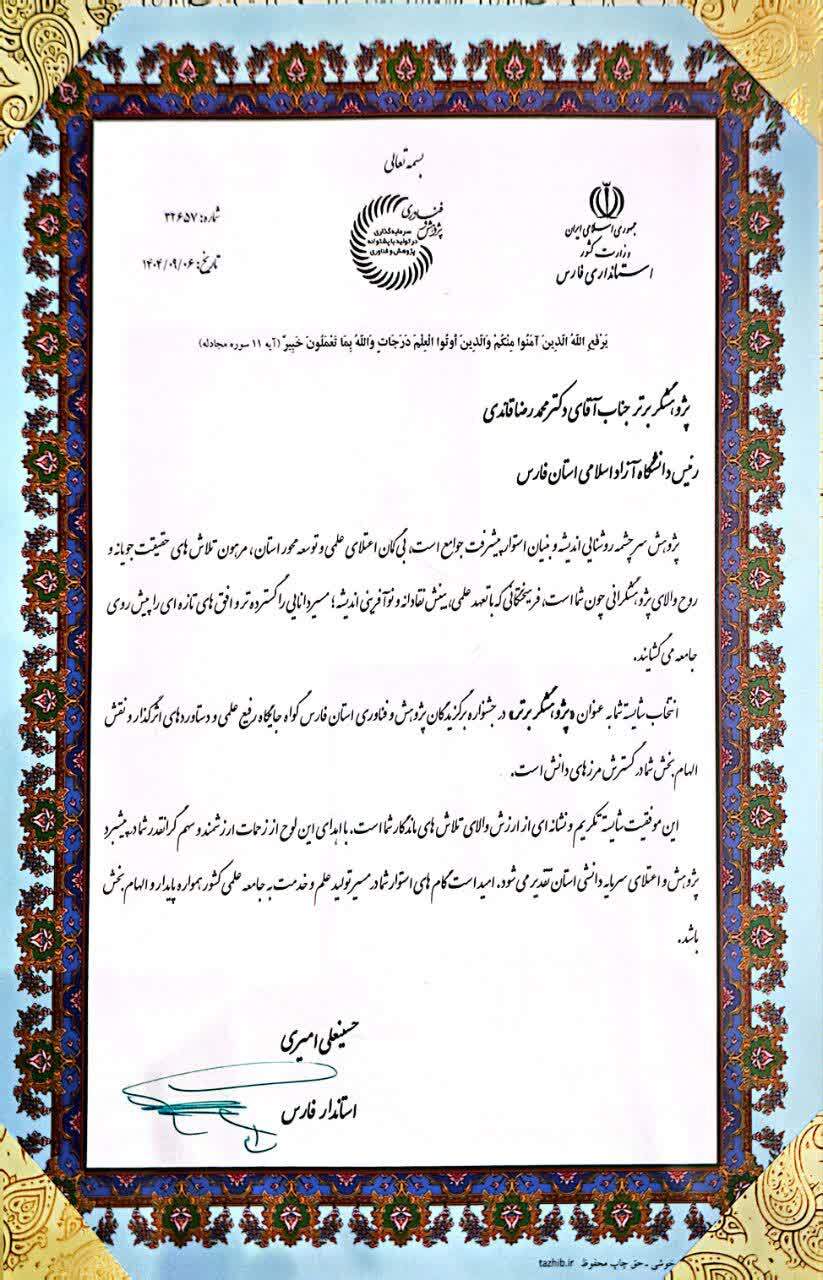 بسمه تعالی
جمهوری اسلامی ایران
وزارت کشور
استانداری فارس
پژوهش و فناوری
سرمایه‌گذاری
در تولید با پشتوانه
پژوهش و فناوری
شماره: ۳۲۶۵۷
تاریخ: ۱۴۰۴/۰۹/۰۶
یَرْفَعِ اللَّهُ الَّذِینَ آمَنُوا مِنْکُمْ وَالَّذِینَ أُوتُوا الْعِلْمَ دَرَجَاتٍ وَاللَّهُ بِمَا تَعْمَلُونَ خَبِیرٌ (آیه ۱۱ سوره مجادله)
پژوهشگر برتر جناب آقای دکتر محمدرضا قائدی
رئیس دانشگاه آزاد اسلامی استان فارس
پژوهش سرچشمه روشنایی اندیشه و بنیان استوار پیشرفت جوامع است، بی گمان اعتلای علمی و توسعه محور استان، مرهون تلاش های حقیقت جویانه و
روح والای پژوهشگرانی چون شما است، فرهیختگانی که با تعهد علمی، بینش نقادانه و نوآفرینی اندیشه؛ مسیر دانایی را گسترده تر و افق های تازه ای را پیش روی
جامعه می گشایند.
انتخاب شایسته شما به عنوان «پژوهشگر برتر» در جشنواره برگزیدگان پژوهش و فناوری استان فارس گواه جایگاه رفیع علمی و دستاوردهای اثرگذار و نقش
الهام بخش شما در گسترش مرزهای دانش است.
این موفقیت شایسته تکریم و نشانه ای از ارزش والای تلاش های ماندگار شما است. با اهدای این لوح از زحمات ارزشمند و سهم گرانقدر شما در پیشبرد
پژوهش و اعتلای سرمایه دانشی استان تقدیر می شود. امید است گام های استوار شما در مسیر تولید علم و خدمت به جامعه علمی کشور همواره پایدار و الهام بخش
باشد.
حسینعلی امیری
استاندار فارس
خوشی - حق چاپ محفوظ tazhib.ir